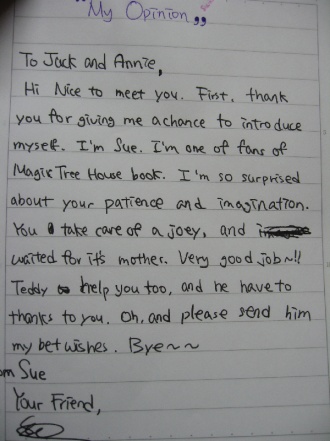 "My Opinion"
To Jack and Annie,
Hi Nice to meet you. First, thank
you for giving me a chance to introduce
myself. I'm Sue. I'm one of fans of
Magic Tree House book. I'm so surprised
about your patience and imagination.
You take care of a joey, and
waited for it's mother. Very good job~!!
Teddy help you too, and he have to
thanks to you. Oh, and please send him
my bet wishes. Bye~~
om Sue
Your Friend,